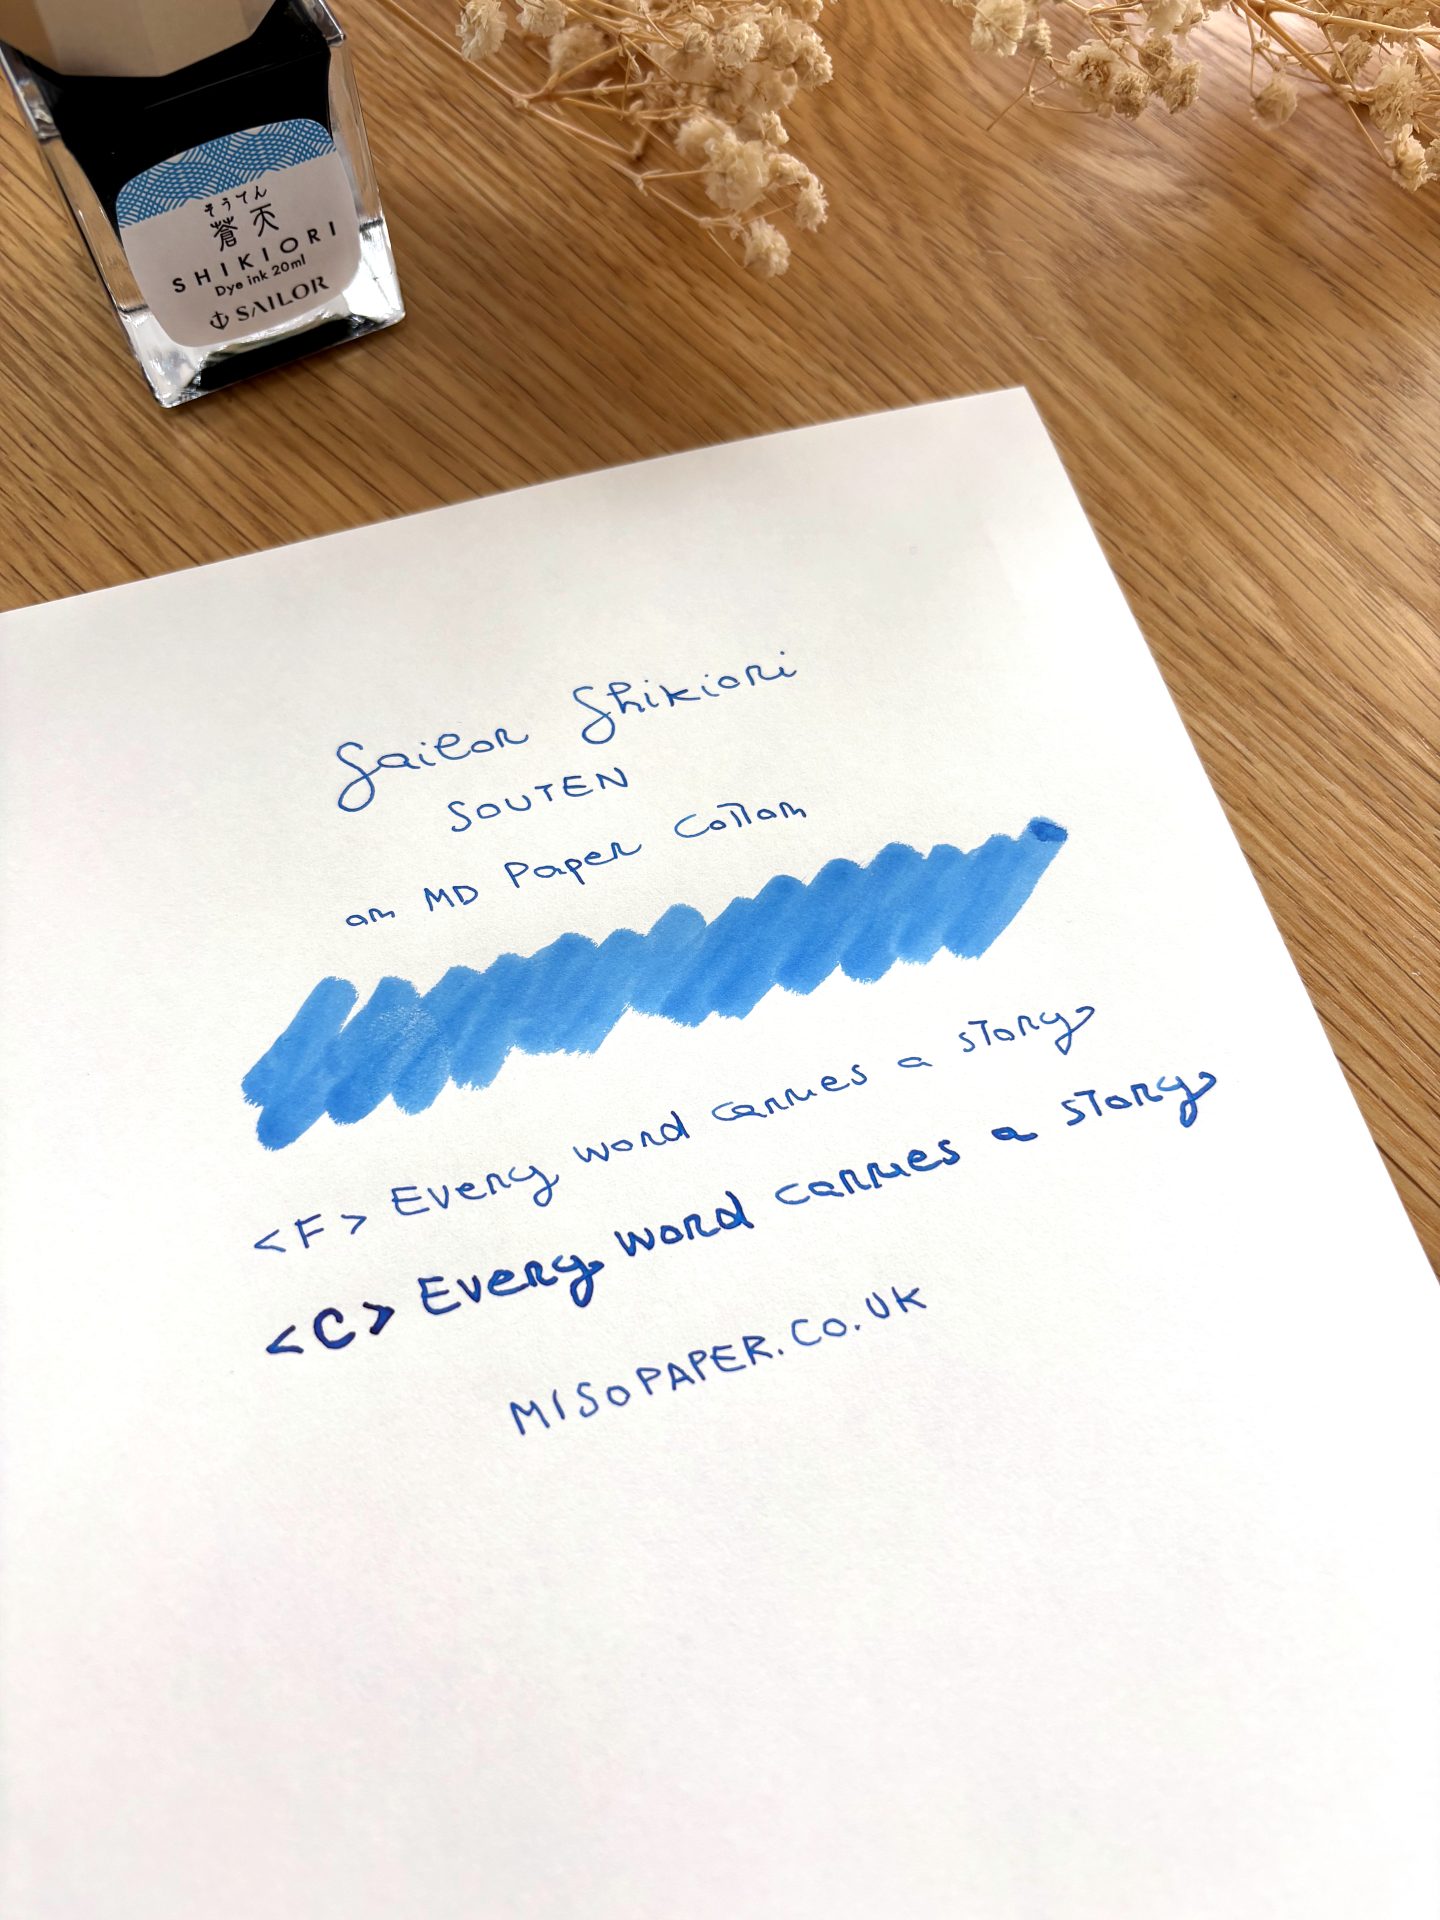 そうてん
蒼天
SHIKIORI
Dye ink 20ml
SAILOR
Sailor Shikiori
SOUTEN
on MD Paper Cotton
<F> Every word carries a story
<C> Every word carries a story
MISOPAPER.CO.UK